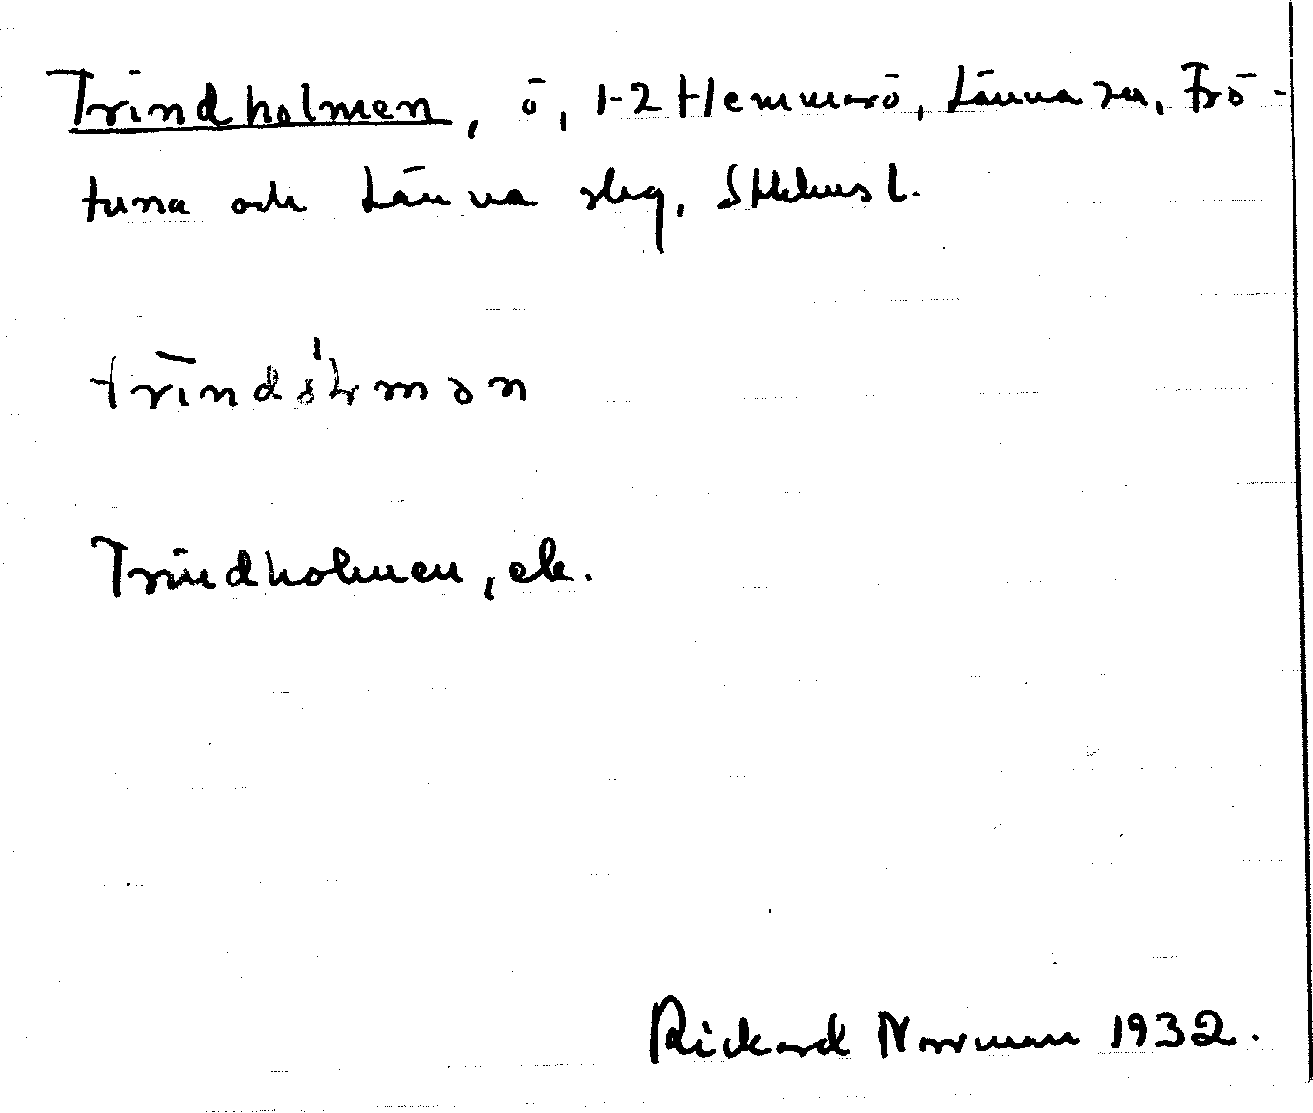 Trindholmen, ö, 1-2 Hemmarö, Länna sn, Frö-
tuna och Länna skg, Sthlms l.
Trindholmen, ek.
Rickard Norrman 1932.